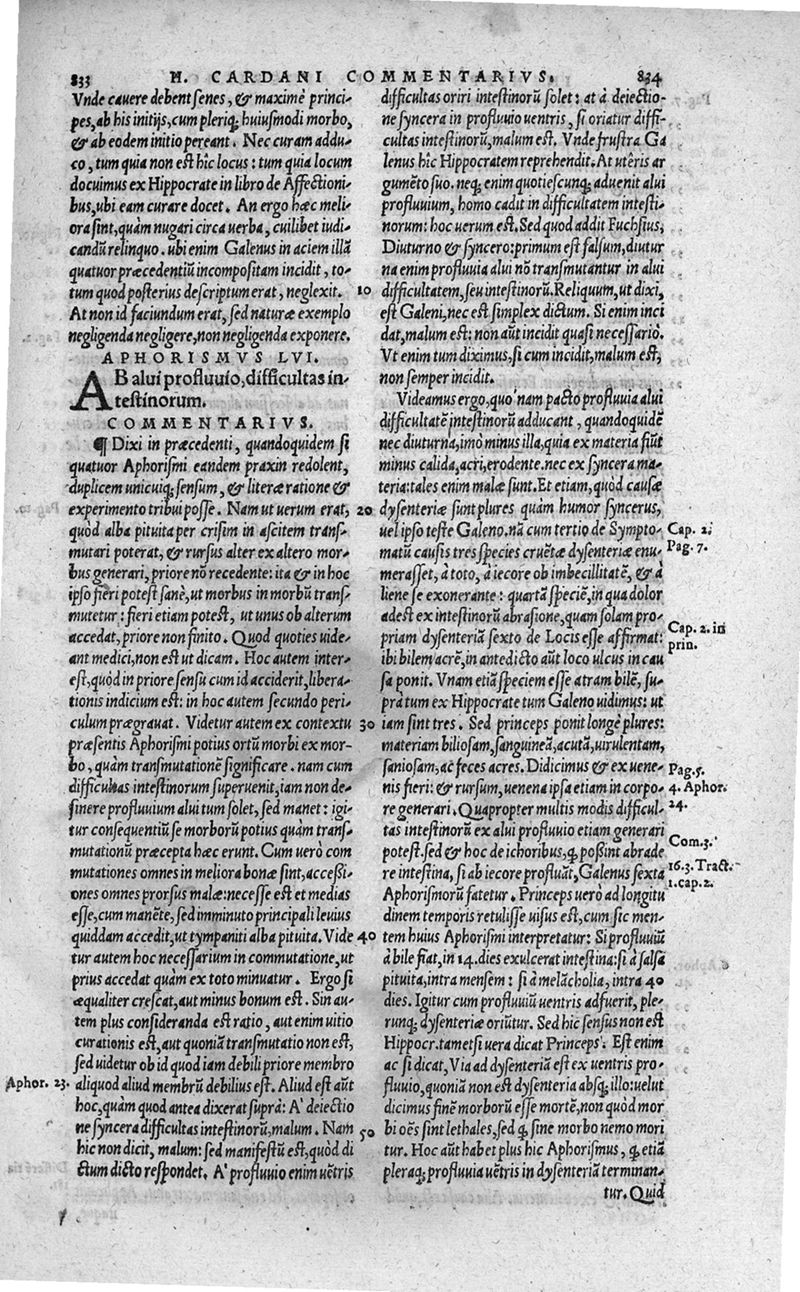 833 H. CARDANI COMMENTARIVS. 834
Vnde cauere debent senes, & maximè princi-
pes, ab his initijs, cum pleriq; huiusmodi morbo,
& ab eodem initio pereant. Nec curam addu-
co, tum quia non est hîc locus: tum quia locum
docuimus ex Hippocrate in libro de Affectioni-
bus, ubi eam curare docet. An ergo hæc meli-
ora sint, quàm nugari circa uerba, cuilibet iudi-
candũ relinquo. ubi enim Galenus in aciem illã
quatuor præcedentiũ incompositam incidit, to-
tum quod posterius descriptum erat, neglexit. 10
At non id faciundum erat, sed naturæ exemplo
negligenda negligere, non negligenda exponere.
APHORISMVS LVI.
AB alui profluuio, difficultas in-
testinorum.
COMMENTARIVS.
¶ Dixi in præcedenti, quandoquidem si
quatuor Aphorismi eandem praxin redolent,
duplicem unicuiq; sensum, & literæ ratione &
experimento tribui posse. Nam ut uerum erat, 20
quòd alba pituita per crisim in ascitem trans-
mutari poterat, & rursus alter ex altero mor-
bus generari, priore nõ recedente: ita & in hoc
ipso fieri potest sanè, ut morbus in morbũ trans-
mutetur: fieri etiam potest, ut unus ob alterum
accedat, priore non finito. Quod quoties uide-
ant medici, non est ut dicam. Hoc autem inter-
est, quòd in priore sensu cum id acciderit, libera-
tionis indicium est: in hoc autem secundo peri-
culum prægrauat. Videtur autem ex contextu 30
præsentis Aphorismi potius ortũ morbi ex mor-
bo, quàm transmutationẽ significare. nam cum
difficultas intestinorum superuenit, iam non de-
sinere profluuium alui tum solet, sed manet: igi-
tur consequentiũ se morborũ potius quàm trans-
mutationũ præcepta hæc erunt. Cum uerò com
mutationes omnes in meliora bonæ sint, accessi-
ones omnes prorsus malæ: necesse est et medias
esse, cum manẽte, sed imminuto principali leuius
quiddam accedit, ut tympaniti alba pituita. Vide 40
tur autem hoc necessarium in commutatione, ut
prius accedat quàm ex toto minuatur. Ergo si
æqualiter crescat, aut minus bonum est. Sin au-
tem plus consideranda est ratio, aut enim uitio
curationis est, aut quoniã transmutatio non est,
sed uidetur ob id quod iam debili priore membro
Aphor. 23. aliquod aliud membrũ debilius est. Aliud est aũt
hoc, quàm quod antea dixerat suprà: A' deiectio
ne syncera difficultas intestinorũ, malum. Nam
hic non dicit, malum: sed manifestũ est, quòd di 50
ctum dicto respondet. A' profluuio enim uẽtris
difficultas oriri intestinorũ solet: at à deiectio-
ne syncera in profluuio uentris, si oriatur diffi-
cultas intestinorũ, malum est. Vnde frustra Ga
lenus hîc Hippocratem reprehendit. At utêris ar
gumẽto suo. neq; enim quotiescunq; aduenit alui
profluuium, homo cadit in difficultatem intesti-
norum: hoc uerum est. Sed quod addit Fuchsius,
Diuturno & syncero: primum est falsum, diutur
na enim profluuia alui nõ transmutantur in alui
difficultatem, seu intestinorũ. Reliquum, ut dixi,
est Galeni, nec est simplex dictum. Si enim inci
dat, malum est: non aũt incidit quasi necessariò.
Vt enim tum diximus, si cum incidit, malum est,
non semper incidit.
Videamus ergo, quo'nam pacto profluuia alui
difficultatẽ intestinorũ adducant, quandoquidẽ
nec diuturna, imò minus illa, quia ex materia fiũt
minus calida, acri, erodente. nec ex syncera ma-
teria: tales enim malæ sunt. Et etiam, quòd causæ
dysenteriæ sunt plures quàm humor syncerus,
uel ipso teste Galeno. nã cum tertio de Sympto- Cap. 2.
matũ causis tres species cruẽtæ dysenteriæ enu- Pag. 7.
merasset, à toto, à iecore ob imbecillitatẽ, & à
liene se exonerante: quartã speciẽ, in qua dolor
adest ex intestinorũ abrasione, quam solam pro-
priam dysenteriã sexto de Locis esse affirmat: Cap. 2. in
ibi bilem acrẽ, in antedicto aũt loco ulcus in cau prin.
sa ponit. Vnam etiã speciem esse atram bilẽ, su-
prà tum ex Hippocrate tum Galeno uidimus: ut
iam sint tres. Sed princeps ponit longè plures:
materiam biliosam, sanguineã, acutã, uirulentam,
saniosam, ac feces acres. Didicimus & ex uene- Pag. 5.
nis fieri: & rursum, uenena ipsa etiam in corpo- 4. Aphor.
re generari. Quapropter multis modis difficul- 24.
tas intestinorũ ex alui profluuio etiam generari
potest. sed & hoc de ichoribus, q̃ possint abrade Com. 3.
re intestina, si ab iecore profluãt, Galenus sexta 16. 3. Tract.
Aphorismorũ fatetur. Princeps uerò ad longitu 1. cap. 2.
dinem temporis retulisse uisus est, cum sic men-
tem huius Aphorismi interpretatur: Si profluuiũ
à bile fiat, in 14. dies exulcerat intestina: si à salsa
pituita, intra mensem: si à melãcholia, intra 40
dies. Igitur cum profluuiũ uentris adfuerit, ple-
runq; dysenteriæ oriũtur. Sed hic sensus non est
Hippocr. tametsi uera dicat Princeps. Est enim
ac si dicat, Via ad dysenteriã est ex uentris pro-
fluuio, quoniã non est dysenteria absq; illo: uelut
dicimus finẽ morborũ esse mortẽ, non quòd mor
bi oẽs sint lethales, sed q̃ sine morbo nemo mori
tur. Hoc aũt habet plus hic Aphorismus, q̃ etiã
pleraq; profluuia uẽtris in dysenteriã terminan-
tur. Quid